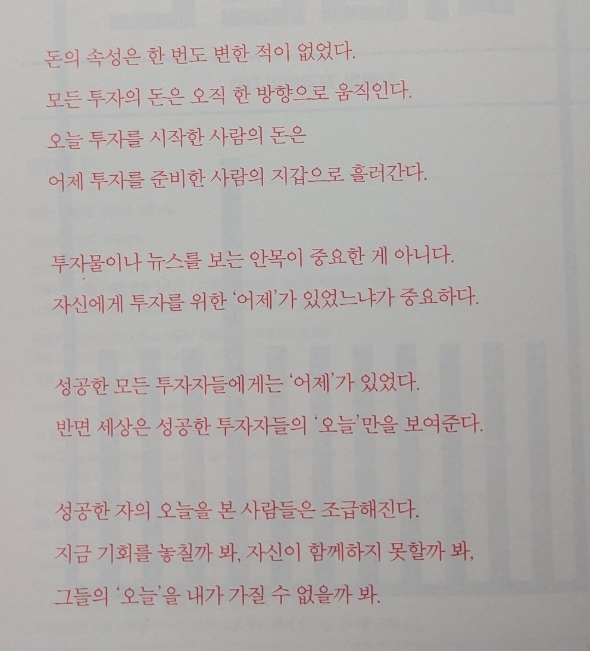 돈의 속성은 한 번도 변한 적이 없었다.
모든 투자의 돈은 오직 한 방향으로 움직인다.
오늘 투자를 시작한 사람의 돈은
어제 투자를 준비한 사람의 지갑으로 흘러간다.
투자물이나 뉴스를 보는 안목이 중요한 게 아니다.
자신에게 투자를 위한 ‘어제’가 있었느냐가 중요하다.
성공한 모든 투자자들에게는 ‘어제’가 있었다.
반면 세상은 성공한 투자자들의 ‘오늘’만을 보여준다.
성공한 자의 오늘을 본 사람들은 조급해진다.
지금 기회를 놓칠까 봐, 자신이 함께하지 못할까 봐,
그들의 ‘오늘’을 내가 가질 수 없을까 봐.